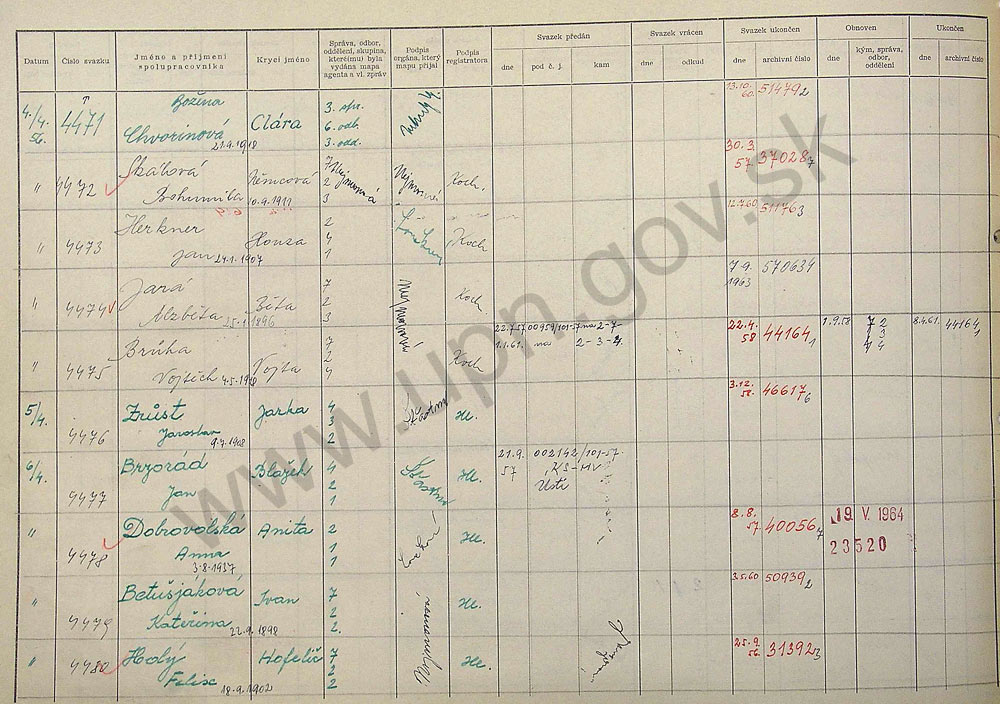 Datum
Číslo svazku
Jméno a příjmení spolupracovníka
Krycí jméno
Správa, odbor, oddělení, skupina, které(mu) byla vydána mapa agenta a vl. zpráv
Podpis orgána, který mapu přijal
Podpis registratora
Svazek předán
dne
pod č. j.
kam
Svazek vrácen
dne
odkud
Svazek ukončen
dne
archivní číslo
Obnoven
dne
kým, správa, odbor, oddělení
Ukončen
dne
archivní číslo
4./4. 56.
4471
Božena
Chvorinová
21.9.1918
Clára
3. spr.
6. odb.
3. odd.
13.10. 60.
51479 2
"
4472
Skálová
Bohumila
Němcová
10.9.1911
7
2
3
Nejmanová
Koch.
30.3. 57
37028 7
"
4473
Herkner
Jan 24.1.1907
Honza
2
4
1
Koch
12.7.60
51176 3
"
4474
Jará
Alzběta 25.1.1896
Běta
7
2
3
Koch
7.9. 1963
570634
"
4475
Brůha
Vojtěch 4.5.1918
Vojta
7
2
4
Koch
22.7.57 00959/101-57 na 2-7
1.1.61. na 2-3-4
22.4. 58
44164 1
1.9.58
7 2
4 3
4 4
8.4.61.
44164 1
5/4.
4476
Zrůst
Jaroslav
9.7.1908
Jarka
4
3
2
Šťastný
He.
3.12. 58.
46617 6
6/4.
4477
Brzorád
Jan
Blažek
4
2
1
He.
21.9. 57
002142/101-57.
KS-MV
Ústí
"
4478
Dobrovolská
Anna
3.8.1937
Anita
2
1
1
He.
8.8. 57
40056 7
19 V. 1964
23520
"
4479
Betušjáková
Kateřina 22.9.1898
Ivan
7
2
2.
He.
3.5.60
50939 2
"
4480
Holý
Felix
18.9.1902
Hofelix
7
2
2
He.
25.9. 56.
31392 3
www.upn.gov.sk